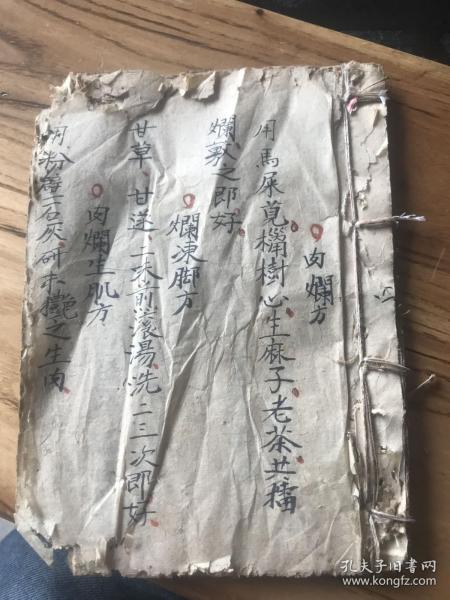 肉爛方
用馬屎莧 樹心生麻子老茶共擂
爛敷之即好
爛凍脚方
甘草、甘遂、二味煎滚湯洗二三次即好
肉爛生肌方
用粉 石灰研末 之生肉
孔夫子旧书网
www.kongfz.com